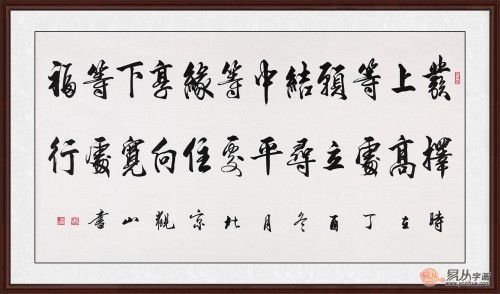 發上等願結中等緣享下等福
擇高處立尋平處住向寬處行
時在丁酉冬月北京觀山書
易从字画